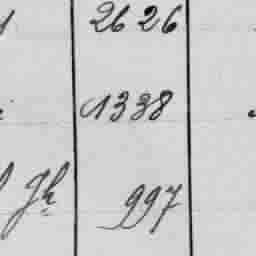 2626
1338
997